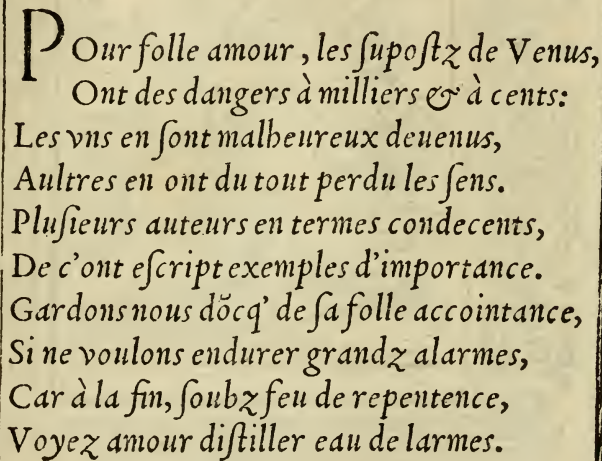 POur folle amour, les ſupoſtz de Venus,
Ont des dangers à milliers & à cents:
Les vns en ſont malheureux deuenus,
Aultres en ont du tout perdu les ſens.
Pluſieurs auteurs en termes condecents,
De c'ont eſcript exemples d'importance.
Gardons nous dõcq' de ſa folle accointance,
Si ne voulons endurer grandz alarmes,
Car à la fin, ſoubz feu de repentence,
Voyez amour diſtiller eau de larmes.